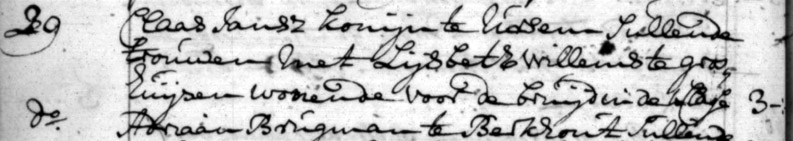 29 Claas Jansz Konijn te Ursem Sullende
trouwen met Lijsbeth Willems te gros„
huijsen woonende voor de bruijd in de Classe 3-
do Adriaan Brugman te Berkhout Sullende